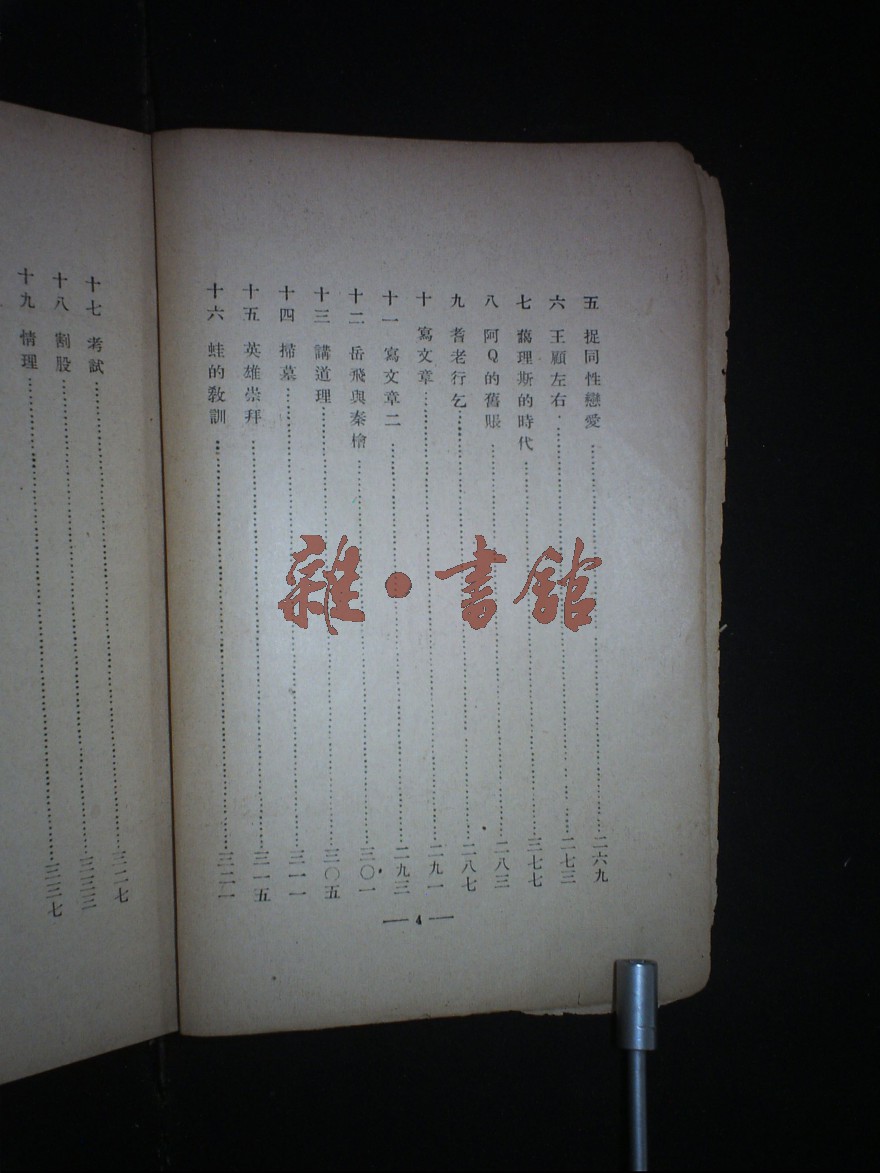 五 捉同性戀愛……二六九
六 王顧左右……二七三
七 藹理斯的時代……三七七
八 阿Q的舊賬……二八三
九 耆老行乞……二八七
十 寫文章……二九一
十一 寫文章二……二九三
十二 岳飛與秦檜……三〇一
十三 講道理……三〇五
十四 掃墓……三一一
十五 英雄崇拜……三一五
十六 蛙的教訓……三二一
— 4 —
十七 考試……三二七
十八 割股……三三三
十九 情理……三三七
雜·書館